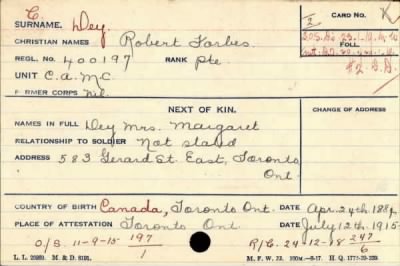 C
SURNAME. Dey. CARD NO.
2
CHRISTIAN NAMES Robert Forbes.
FOLL.
REGL. NO. 400197 RANK Pte.
UNIT C.A.M.C. #2. D.D.
FORMER CORPS Nil.
NEXT OF KIN. CHANGE OF ADDRESS
NAMES IN FULL Dey Mrs. Margaret
RELATIONSHIP TO SOLDIER Not stated
ADDRESS 583 Gerard St. East, Toronto
Ont.
COUNTRY OF BIRTH Canada, Toronto Ont. DATE Apr. 24th
PLACE OF ATTESTATION Toronto Ont. DATE July 12th 1915
O/S. 11-9-15 197/1 R/C. 24-12-18 247/6
L. L. M. & D. M. F. W. H. Q.